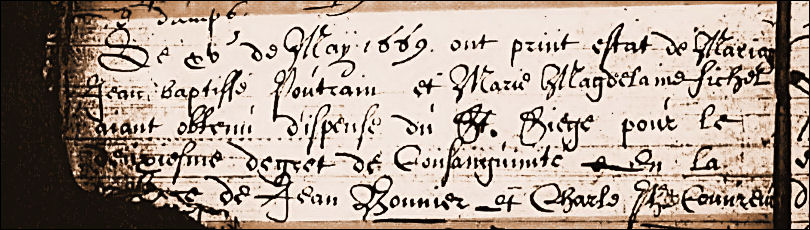 Le xv de May 1669. ont print estat de Mariag
Jean baptiste Poutrain et Marie Magdelaine fichel
aiant obtenu dispense du St. Siege pour le
deuxiesme degret de Consanguinite en la
de Jean Bonnier et Charle